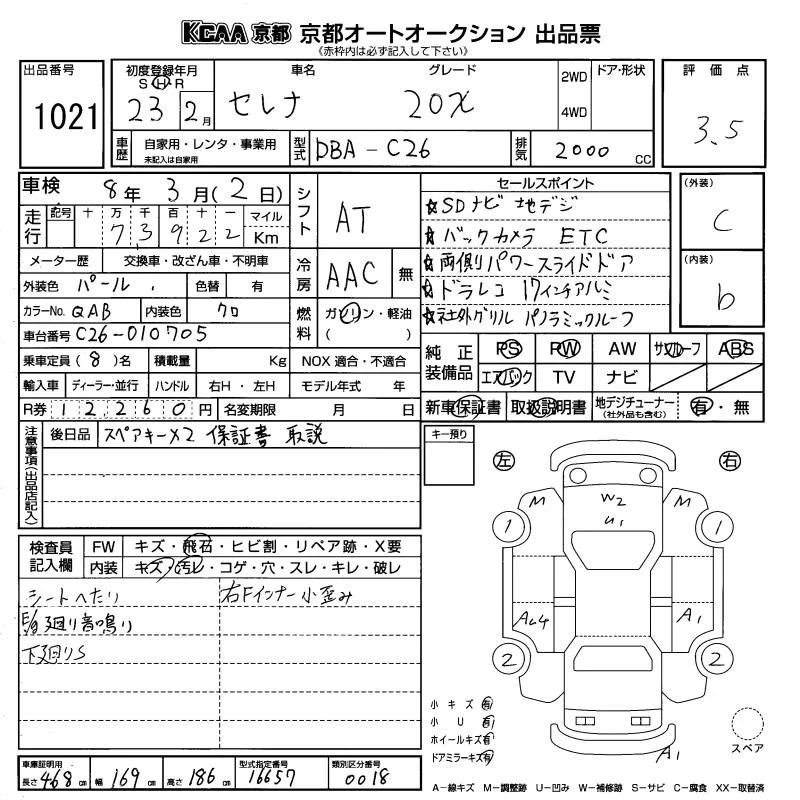 KCAA 京都 京都オートオークション 出品票
《赤枠内は必ず記入して下さい》
出品番号
1021
初度登録年月
S H R
23 2月
車名
セレナ
グレード
20X
2WD
4WD
ドア・形状
評価点
3.5
車歴 自家用・レンタ・事業用
未記入は自家用
型式 DBA-C26
排気 2000 CC
車検 8年 3月(2日)
走行 記号 十 万 千 百 十 一 マイル
7 3 9 2 2 Km
メーター歴 交換車・改ざん車・不明車
外装色 パール 色替 有
カラーNo. QAB 内装色 クロ
車台番号 C26-010705
乗車定員(8)名 積載量 Kg
輸入車 ディーラー・並行 ハンドル 右H・左H
R券 12260円 名変期限 月 日
シフト AT
冷房 AAC 無
燃料 ガソリン・軽油
( )
NOX 適合・不適合
モデル年式 年
セールスポイント
☆SDナビ 地デジ
☆バックカメラ ETC
☆両側パワースライドドア
☆ドラレコ 17インチアルミ
☆社外グリル パノラミックルーフ
(外装)
C
(内装)
b
純正装備品 PS PW AW サンルーフ ABS
エアバック TV ナビ
新車保証書 取扱説明書 地デジチューナー
(社外品も含む)
有・無
注意事項(出品店記入)
後日品 スペアキー×2 保証書 取説
キー預り
左 右
検査員記入欄
FW キズ・飛石・ヒビ割・リペア跡・X要
内装 キズ・汚レ・コゲ・穴・スレ・キレ・破レ
シートへたり
右Fインナー小歪み
E/g廻り音鳴り
下廻りS
M W2 M
1 U1 1
A4 A1
2 2
小キズ 有
小U 有
ホイールキズ 有
ドアミラーキズ 有
A1
スペア
車庫証明用
長さ 468 cm 幅 169 cm 高さ 186 cm
型式指定番号
16657
類別区分番号
0018
A-線キズ M-調整跡 U-凹み W-補修跡 S-サビ C-腐食 XX-取替済